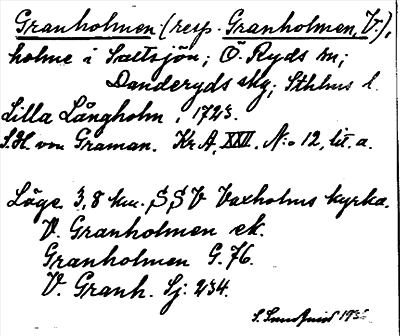 Granholmen (resp. Granholmen, V.),
holme i Saltsjön; Ö. Ryds sn;
Danderyds skg; Sthlms l.
Lilla Långholm, 1723.
S.H. von Graman. Kr A, XXII. N:o 12, lit. a.
Läge 3,8 km. SSV Vaxholms kyrka.
V. Granholmen ek.
Granholmen G. 76.
V. Granh. Sj: 234.